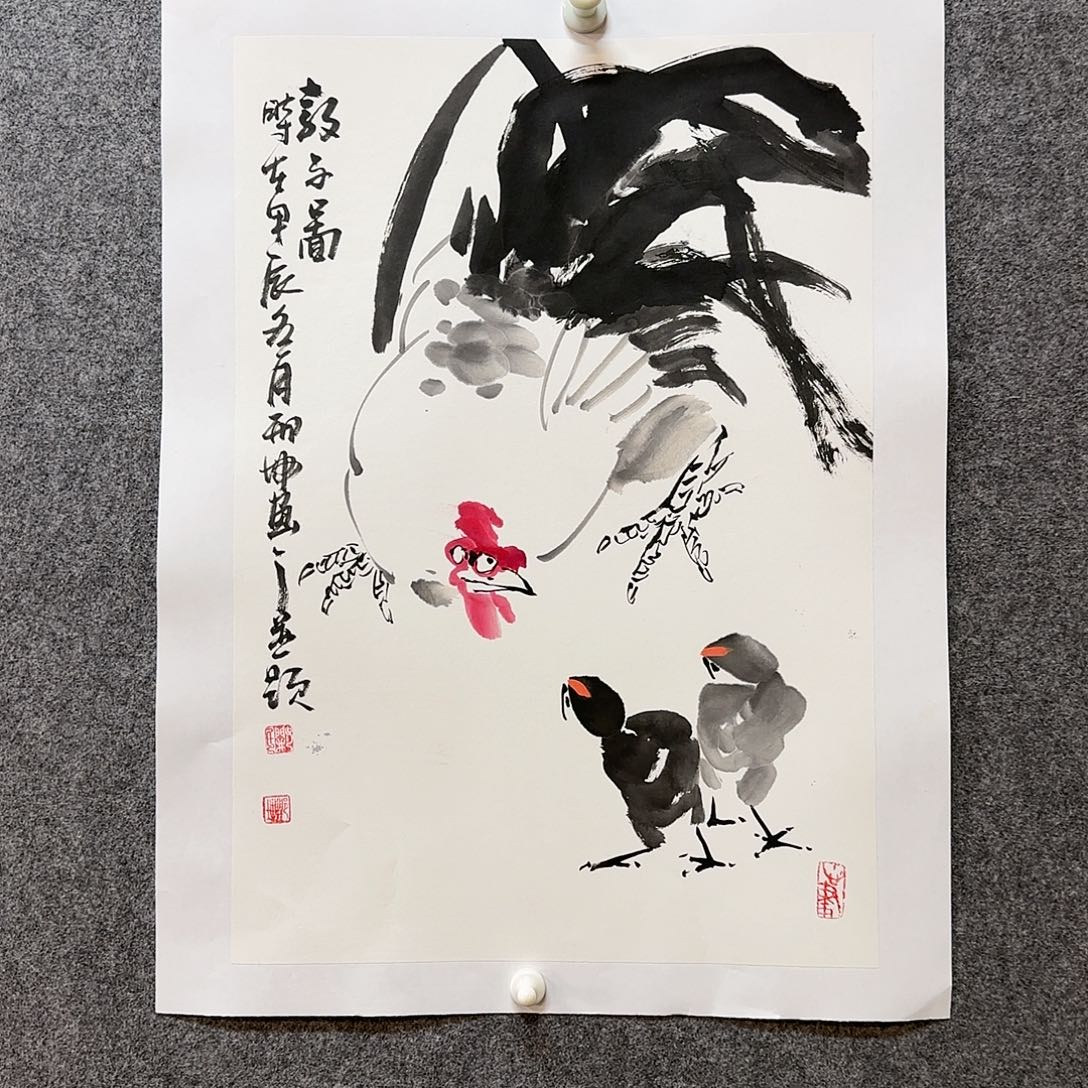 教子圖
時在甲辰五月邢坤画之並題